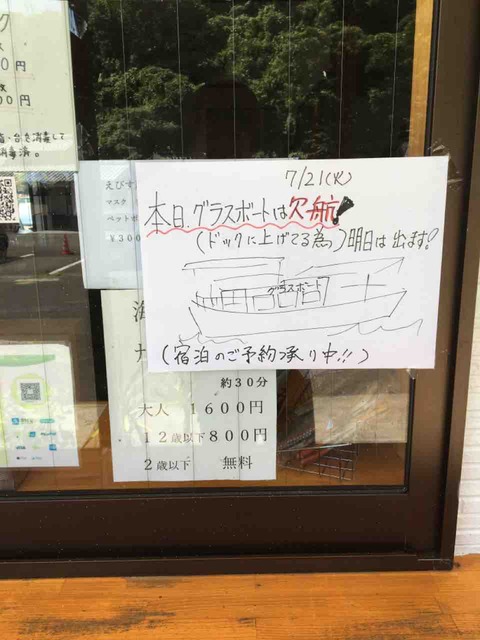 0円
00円
消毒済。
えびす
マスク
ペットボ
¥300
7/21(火)
本日、グラスボートは欠航!
(ドックに上げてる為)明日は出ます!
グラスボート
(宿泊のご予約承り中!!)
海
約30分
大人 1600円
12歳以下 800円
2歳以下 無料